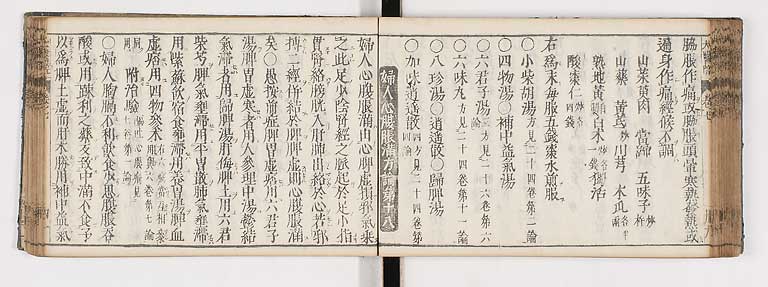 脇脹作痛或脇脹頭暈寒熱發熱或
遍身作痛經候不調
山茱萸肉 當歸 五味子
山藥 黄芪 川芎 木瓜
熟地黄 白朮 獨活
酸棗仁
右爲末毎服五錢棗水煎服
〇小柴胡湯 方見二十四卷第二論
〇四物湯〇補中益氣湯
〇六君子湯 方見二十六卷第六論
〇六味丸 方見二十四卷第十一論
〇八珍湯〇逍遙散〇歸脾湯
〇加味逍遙散 四方見二十四卷第四論
婦人心腹脹滿方論第十八
婦人心腹脹滿由心脾虚損邪氣乘
之此足少陰腎經之脉起於足小指
貫腎絡膀胱入肝肺出絡於心若邪
搏三經併結於脾脾虚則心腹脹滿
矣〇愚按前症脾胃虚痞用六君子
湯脾胃虚寒者用人參理中湯鬱結
氣滯者用歸脾湯肝侮脾土用六君
柴芍脾氣壅滯用平胃散肺氣壅滯
用紫蘇飲宿食壅滯用養胃湯脾血
虚痞用四物參朮
附治驗
〇婦人胸膈不利飲食少思腹脹吞
酸或用疎利之藥反致中滿不食予
以爲脾土虚而肝木勝用補中益氣